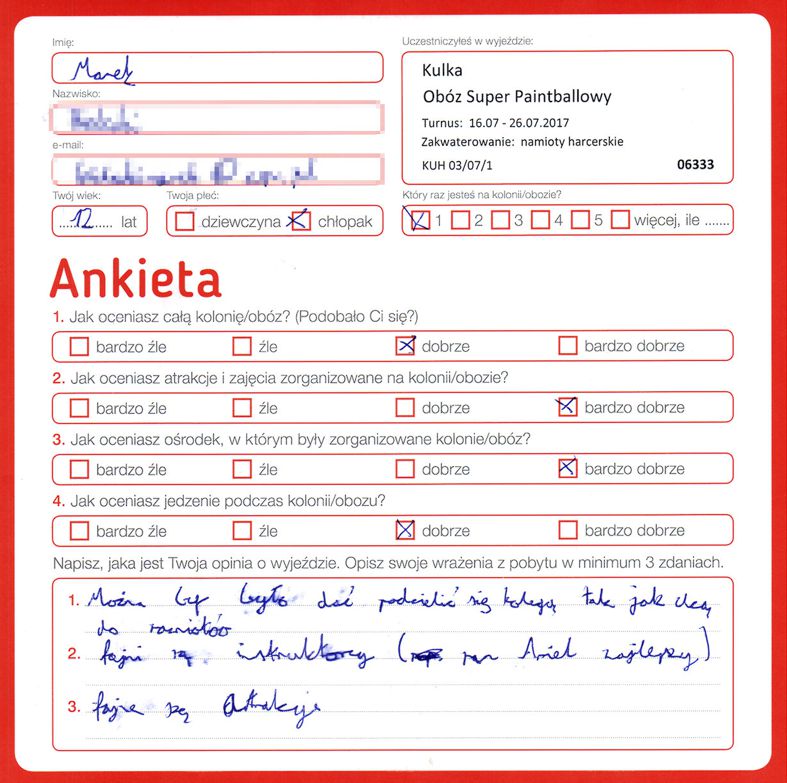 Imię:
Marek
Nazwisko:
e-mail:
Twój wiek:
12 lat
Twoja płeć:
dziewczyna chłopak
Uczestniczyłeś w wyjeździe:
Kulka
Obóz Super Paintballowy
Turnus: 16.07 - 26.07.2017
Zakwaterowanie: namioty harcerskie
KUH 03/07/1 06333
Który raz jesteś na kolonii/obozie?
1 2 3 4 5 więcej, ile .......
Ankieta
1. Jak oceniasz całą kolonię/obóz? (Podobało Ci się?)
bardzo źle źle dobrze bardzo dobrze
2. Jak oceniasz atrakcje i zajęcia zorganizowane na kolonii/obozie?
bardzo źle źle dobrze bardzo dobrze
3. Jak oceniasz ośrodek, w którym były zorganizowane kolonie/obóz?
bardzo źle źle dobrze bardzo dobrze
4. Jak oceniasz jedzenie podczas kolonii/obozu?
bardzo źle źle dobrze bardzo dobrze
Napisz, jaka jest Twoja opinia o wyjeździe. Opisz swoje wrażenia z pobytu w minimum 3 zdaniach.
1. Można by było dać podzielić się kolegą tak jak chcą
do
2. fajni są instruktorzy ( pan Ariel najlepszy)
3. fajne są Atrakcje